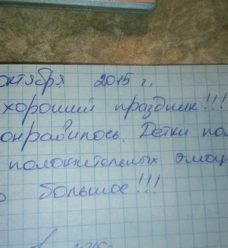 октября 2015 г.
хороший праздник!!!
онравилось. Детки пол
положительных эмоц
о большое!!!